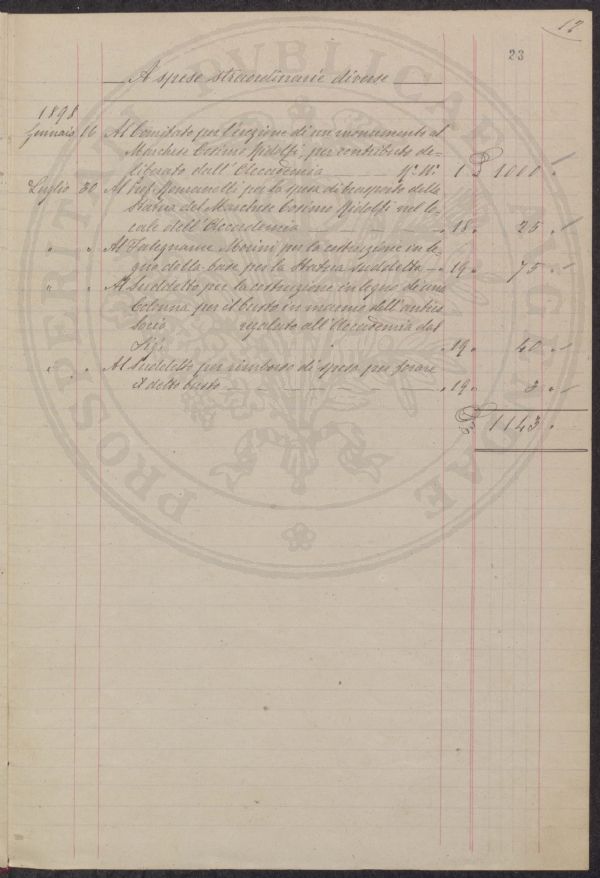 12
23
A spese straordinarie diverse
1898
Gennaio 16 Al Comitato per l'erezione di un monumento al
Marchese Cosimo Ridolfi, per contributo de-
liberato dall'Accademia N.° 1 £ 1000
Luglio 30 Al Prof. Romanelli per la spesa di trasporto della
Statua del Marchese Cosimo Ridolfi nel lo-
cale dell'Accademia " 18 " 25 "
" " Al Falegname Morini per la costruzione in le-
gno della base per la Statua suddetta " 19 " 75 "
" " Al Suddetto per la costruzione in legno di una
Colonna per il busto in marmo dell'antico
Socio regalato all'Accademia dal
Sig. " 19 " 40 "
" " Al Suddetto per rimborso di spesa per forare
il detto busto " 19 " 3 "
£ 1143 "
PROSPERITATI PVBLICAE AVGENDAE